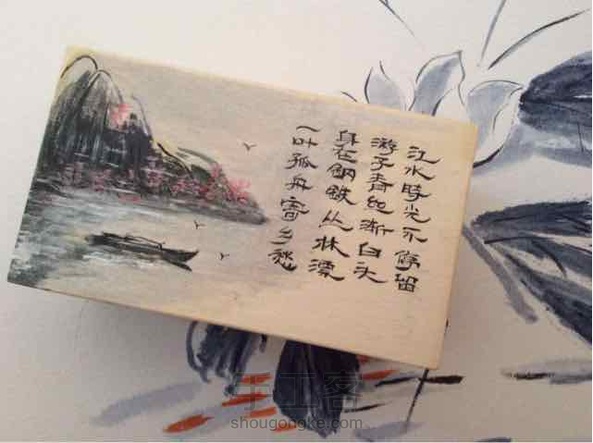 江水時光不停留
游子青丝渐白头
身在鋼鐵丛林漂
一叶孤舟寄乡愁
手工客
shougongke.com